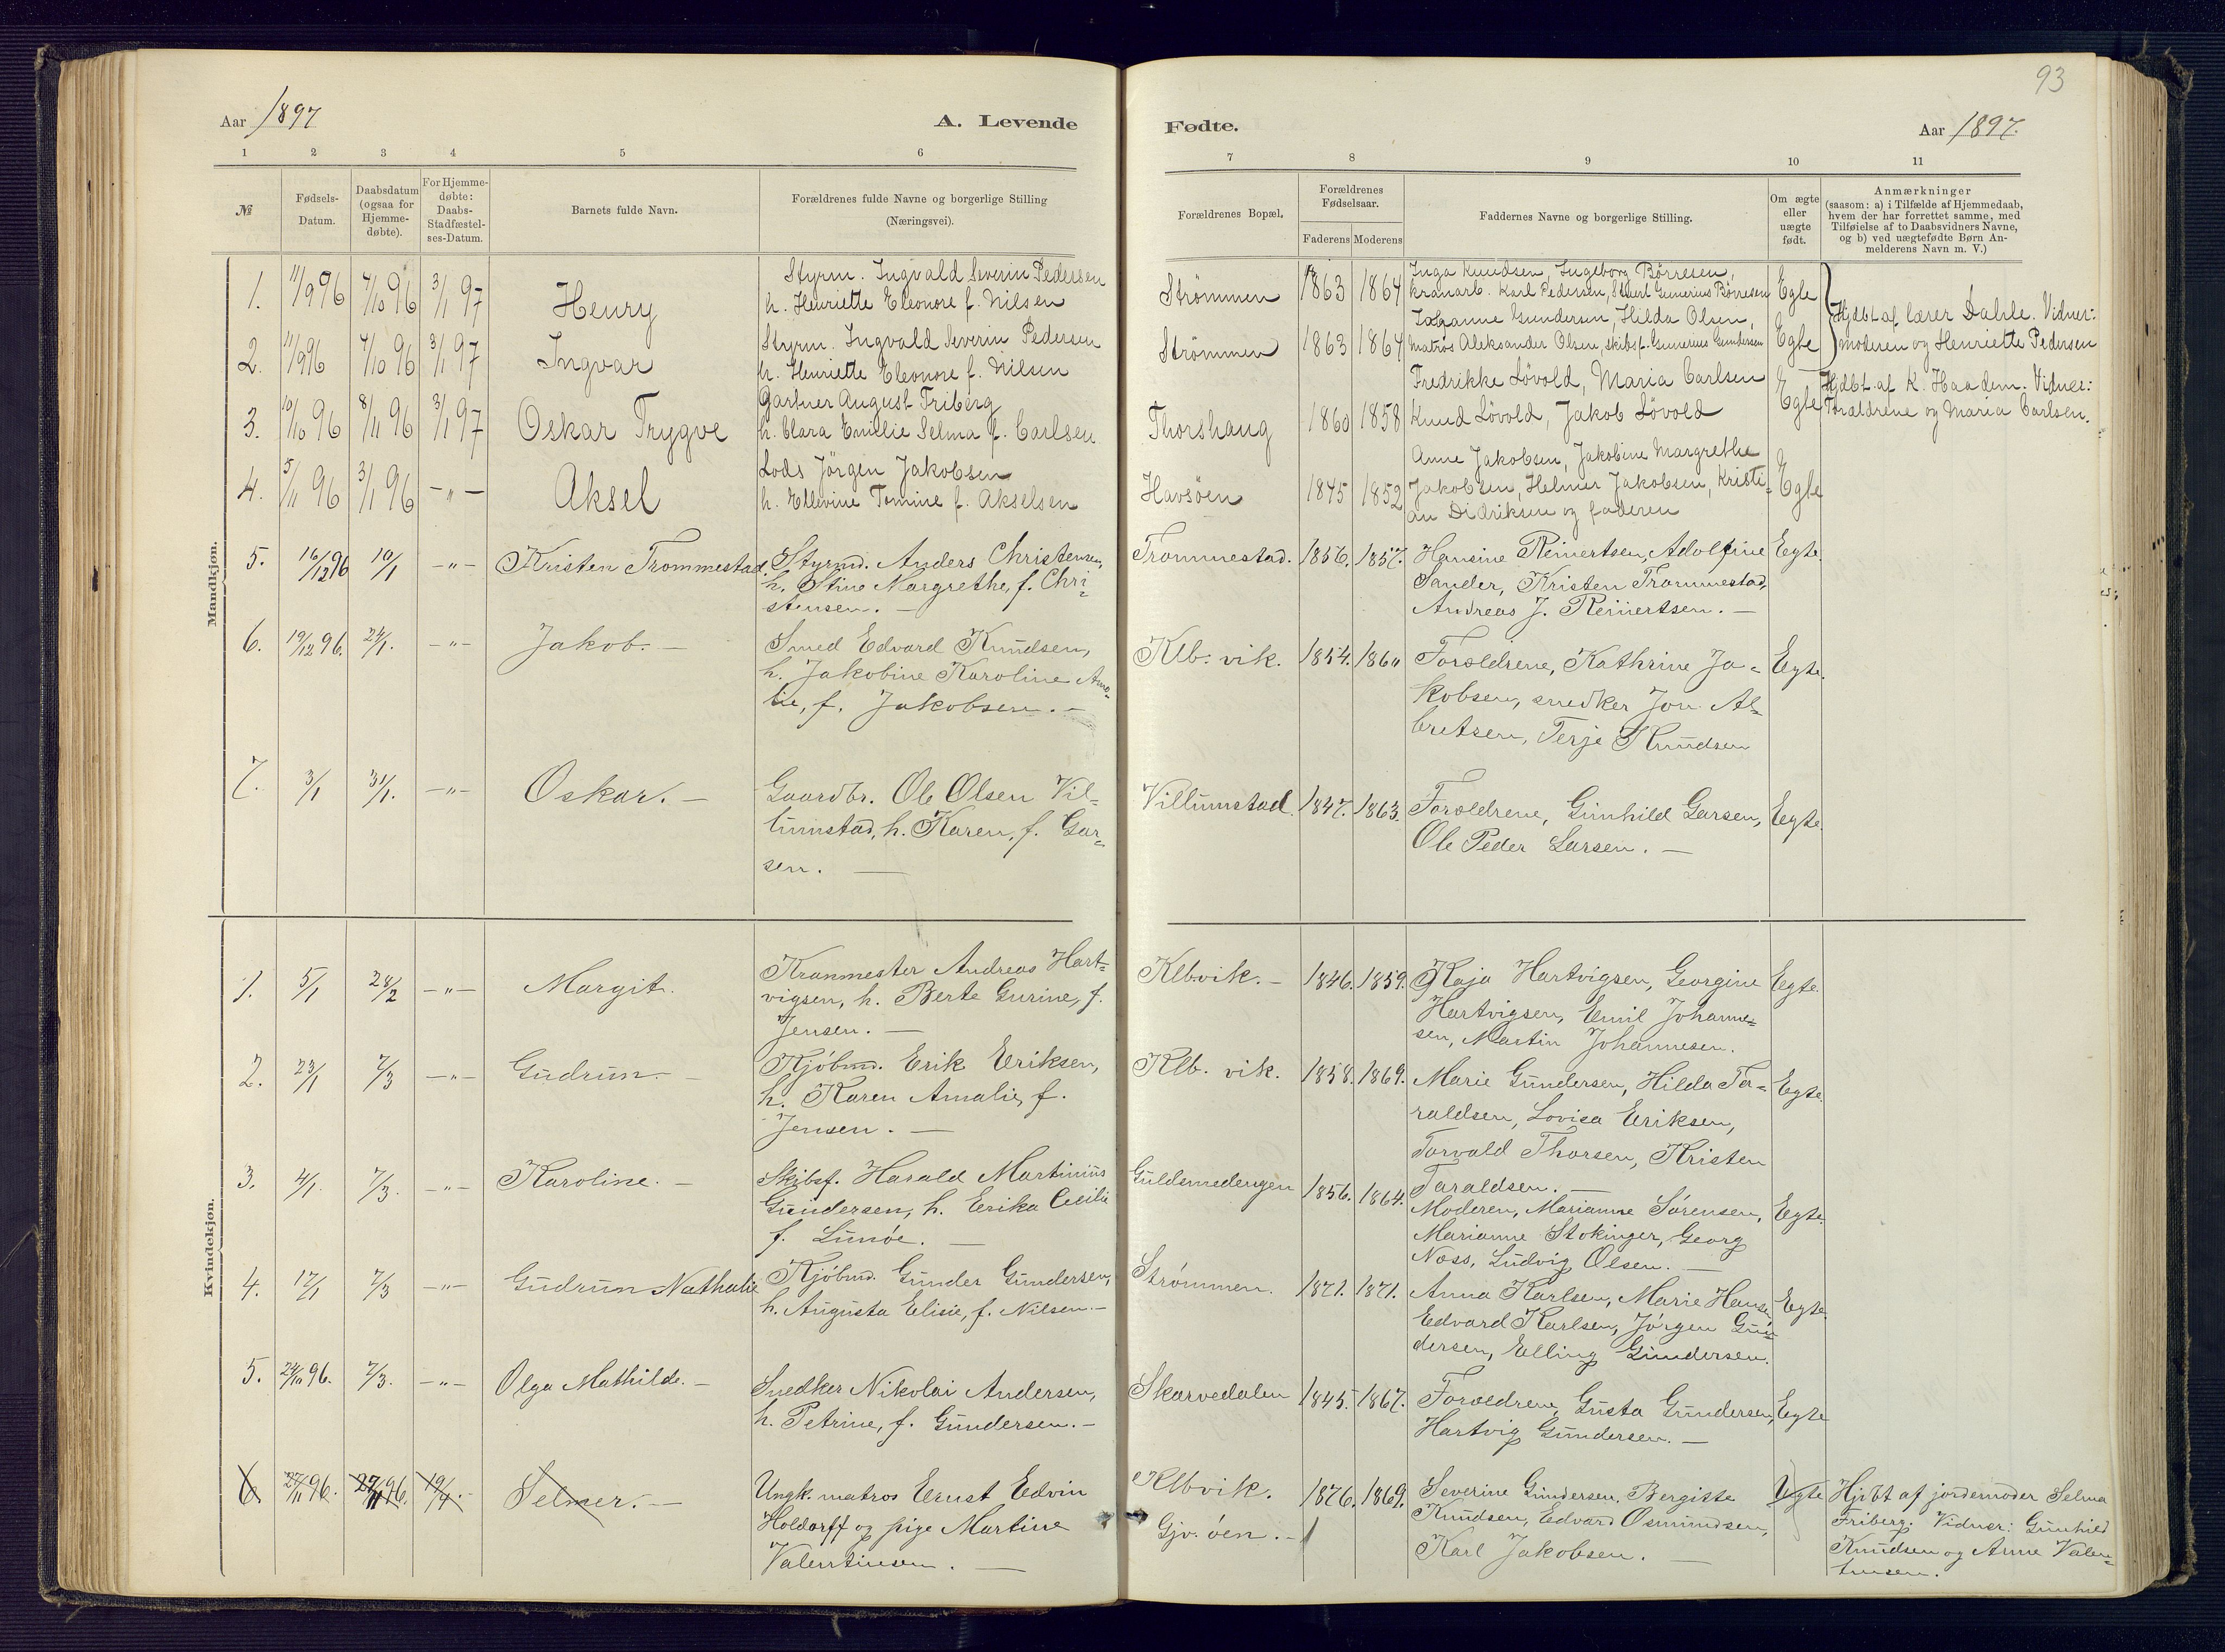 93
Aar 1897
A. Levende
Fødte.
Aar 1897.
1 2 3 4 5 6 7 8 9 10 11
№
Fødsels-
Datum.
Daabsdatum
(ogsaa for
Hjemme-
døbte).
For Hjemme-
døbte:
Daabs-
Stadfæstel-
ses-Datum.
Barnets fulde Navn.
Forældrenes fulde Navne og borgerlige Stilling
(Næringsvei).
Forældrenes Bopæl.
Forældrenes
Fødselsaar.
Faderens Moderens
Faddernes Navne og borgerlige Stilling.
Om ægte
eller
uægte
født.
Anmærkninger
(saasom: a) i Tilfælde af Hjemmedaab,
hvem der har forrettet samme, med
Tilføielse af to Daabsvidners Navne,
og b) ved uægtefødte Børn An-
melderens Navn m. V.)
Mandkjøn.
1. 11/9 96 4/10 96 3/1 97 Henry
Styrm. Ingvald Severin Pedersen
h. Henriette Eleonore f. Nilsen
Strömmen 1863 1864
Inga Knudsen, Ingeborg Börresen,
kranarb. Karl Pedersen, Gunerius Börresen
Egte
Hjdbt af lærer Dahle. Vidner:
moderen og Henriette Pedersen
2. 11/9 96 4/10 96 3/1 97 Ingvar
Styrm. Ingvald Severin Pedersen
h. Henriette Eleonore f. Nilsen
Strömmen 1863 1864
Johanne Gundersen, Hilda Olsen,
matros Aleksander Olsen, skibsf. Gunerius Gundersen
Egte
3. 10/10 96 8/11 96 3/1 97 Oskar Trygve
Gartner August Friberg
h. Clara Emilie Selma f. Carlsen
Thorshaug 1860 1858
Fredrikke Lövold, Maria Carlsen
Knud Lövold, Jakob Lövold
Egte
Hjdbt af K. Haadem. Vidner:
Forældrene og Maria Carlsen.
4. 5/11 96 3/1 96 -"- Aksel
Lods Jörgen Jakobsen
h. Ellevine Tomine f. Akselsen
Havsöen 1845 1852
Anne Jakobsen, Jakobine Margrethe
Jakobsen, Helmer Jakobsen, Kristi-
an Didriksen og faderen
Egte
5. 16/12 96 10/1 -"- Kristen Trommestad.
Styrmd. Anders Christensen,
h. Stine Margrethe, f. Chri-
stensen. —
Trommestad. 1856. 1857.
Hansine Reinertsen, Adolfine
Sander, Kristen Trommestad,
Andreas J. Reinertsen. —
Egte.
6. 19/12 96. 24/1. -"- Jakob. —
Smed Edvard Knudsen,
h. Jakobine Karoline Ama-
lie, f. Jakobsen. —
Klb. vik. 1854. 1860
Forældrene, Kathrine Ja-
kobsen, snedker Jon Al-
bretsen, Terje Knudsen
Egte.
7. 3/1 31/1. -"- Oskar. —
Gaardbr. Ole Olsen Vil-
lumstad, h. Karen, f. Lar-
sen. —
Villumstad. 1847. 1863.
Forældrene, Gunhild Larsen,
Ole Peder Larsen. —
Egte.
Kvindekjøn.
1. 5/1 28/2 -"- Margit.
Kranmester Andreas Hart-
vigsen, h. Berte Gurine, f.
Jensen. —
Klbvik. — 1846. 1859.
Kaja Hartvigsen, Georgine
Hartvigsen, Emil Johanne-
sen, Martin Johannesen.
Egte.
2. 23/1 7/3 -"- Gudrun. —
Kjöbmd. Erik Eriksen,
h. Karen Amalie, f.
Jensen. —
Klb. vik. 1858. 1869.
Marie Gundersen, Hilda Ta-
raldsen, Lovisa Eriksen,
Torvald Thorsen, Kristen
Taraldsen. —
Egte.
3. 4/1. 7/3. -"- Karoline. —
Skibsf. Harald Martinius
Gundersen, h. Erika Cecilie
f. Lunöe. —
Guldsmedengen 1856. 1864.
Moderen, Marianne Sörensen,
Marianne Stokinger, Georg
Næss, Ludvig Olsen. —
Egte.
4. 17/1 7/3 -"- Gudrun Nathalie
Kjöbmd. Gunder Gundersen,
h. Augusta Elisie, f. Nilsen. —
Strömmen. 1871. 1871.
Anna Karlsen, Marie Hansen,
Edvard Karlsen, Jörgen Gun-
dersen, Elling Gundersen.
Egte.
5. 24/10 96. 7/3. -"- Olga Mathilde. —
Snedker Nikolai Andersen,
h. Petrine, f. Gundersen. —
Skarvedalen 1845. 1867.
Forældrene, Gusta Gundersen,
Hartvig Gundersen. —
Egte
6 27/11 96. 27/11 96. 19/4. Selmer. —
Ungk. matros Ernst Edvin
Holdorff og pige Martine
Valentinsen. —
Klbvik. 1876. 1869.
Gjv. öen. —
Severine Gundersen, Bergitte
Knudsen, Edvard Osmundsen,
Karl Jakobsen. —
Uegte
Hjdbt af jordemoder Selma
Friberg. Vidner: Gunhild
Knudsen og Anne Valen-
tinsen.